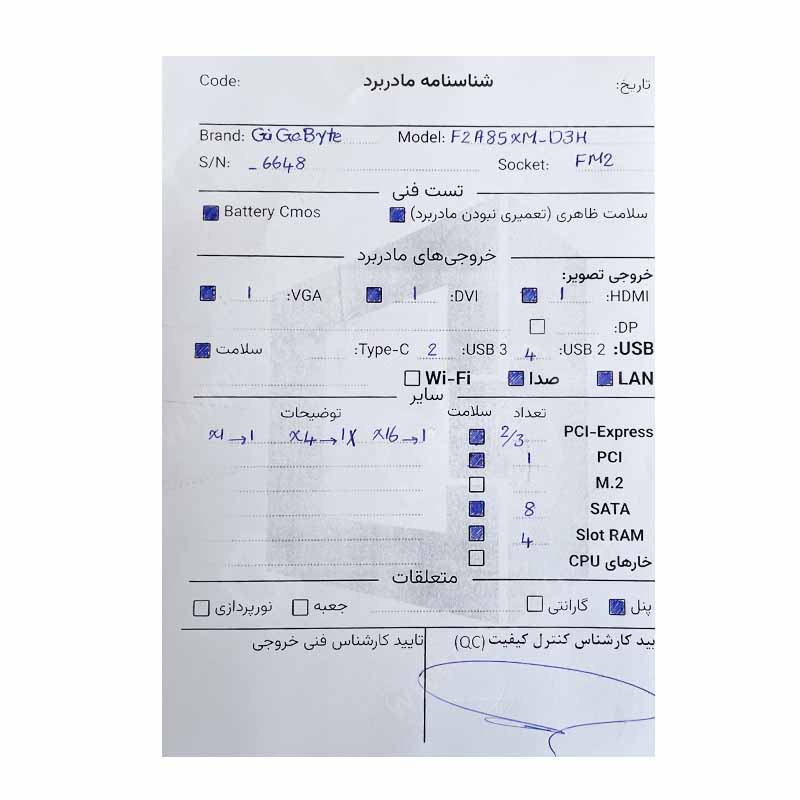 Code: شناسنامه مادربرد تاریخ:
Brand: GiGaByte Model: F2A85XM-D3H
S/N: _6648 Socket: FM2
تست فنی
سلامت ظاهری (تعمیری نبودن مادربرد) Battery Cmos
خروجی‌های مادربرد
خروجی تصویر:
HDMI: 1 DVI: 1 VGA: 1
DP:
USB: USB 2: 4 USB 3: 2 Type-C: سلامت
LAN صدا Wi-Fi
سایر
تعداد سلامت توضیحات
PCI-Express 2/3 x16→1 x4→1 x1→1
PCI 1
M.2
SATA 8
Slot RAM 4
خارهای CPU
متعلقات
پنل گارانتی جعبه نورپردازی
یید کارشناس کنترل کیفیت (QC) تایید کارشناس فنی خروجی